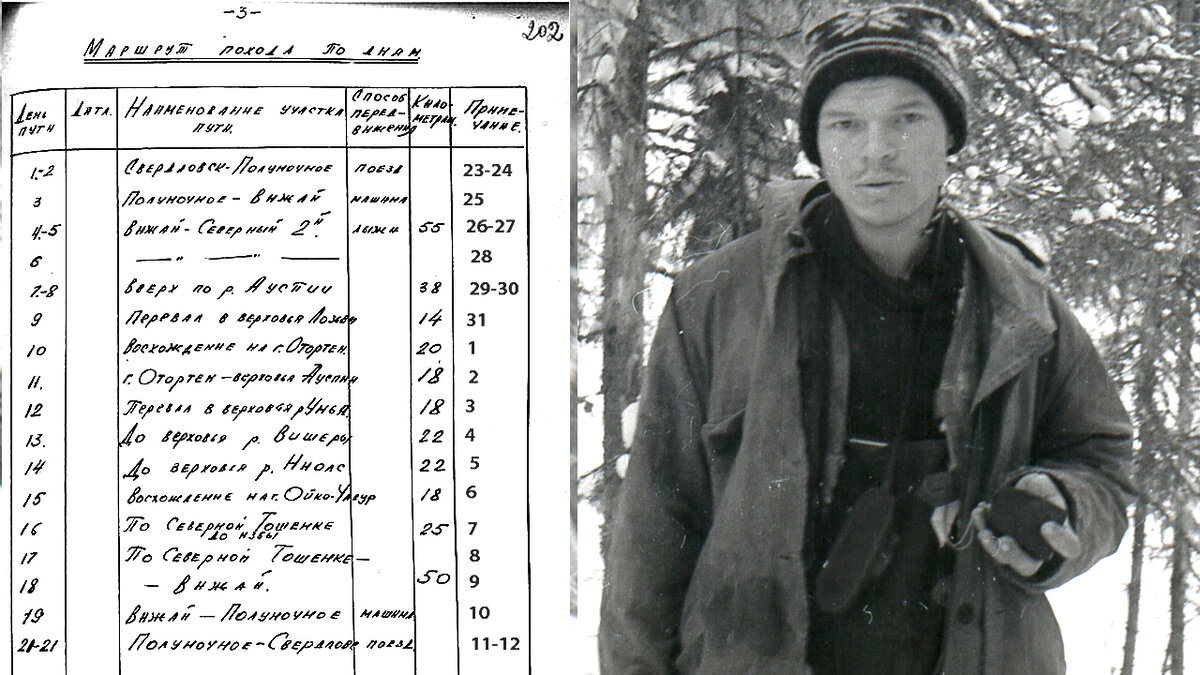 -3-
202
Маршрут похода по дням
День пути Дата. Наименование участка пути. Способ передвижения Километраж. Примечание.
1-2 Свердловск-Полуночное поезд 23-24
3 Полуночное - Вижай машина 25
4-5 Вижай-Северный 2й. лыжи 55 26-27
6 — " — " — 28
7-8 Вверх по р. Ауспии 38 29-30
9 Перевал в верховья Лозьвы 14 31
10 Восхождение на г. Отортен. 20 1
11. г. Отортен - верховья Ауспии 18 2
12 Перевал в верховья р Унья. 18 3
13. До верховья р. Вишеры 22 4
14 До верховья р. Ниолс 22 5
15 Восхождение на г. Ойко-Чакур 18 6
16 По Северной Тошемке до избы 25 7
17 По Северной Тошемке - 8
18 - Вижай. 50 9
19 Вижай - Полуночное машина 10
20-21 Полуночное-Свердловс поезд 11-12